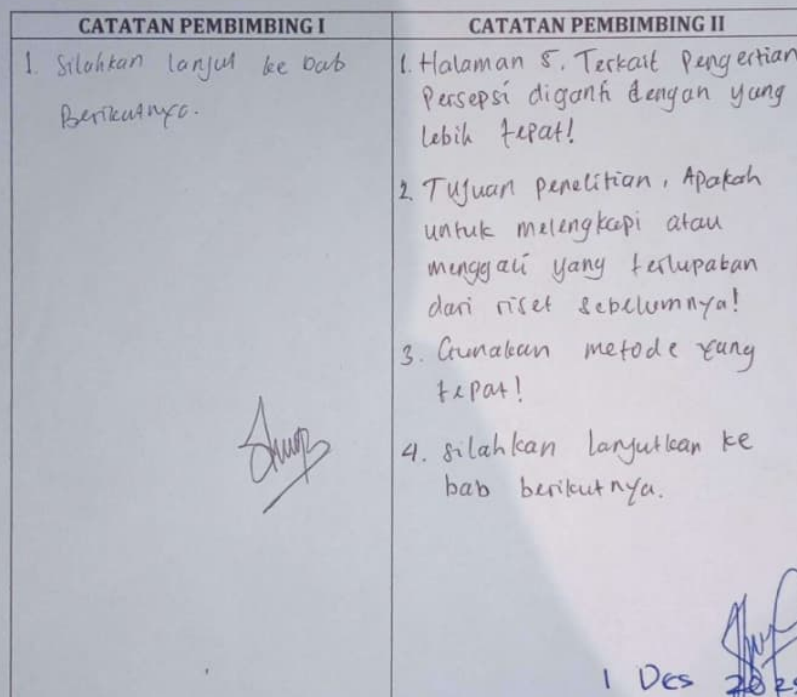 CATATAN PEMBIMBING I
1. Silahkan lanjut ke bab
Berikutnya.
CATATAN PEMBIMBING II
1. Halaman 5. Terkait Pengertian
Persepsi diganti dengan yang
lebih tepat!
2. Tujuan penelitian, Apakah
untuk melengkapi atau
menggali yang terlupakan
dari riset sebelumnya!
3. Gunakan metode yang
tepat!
4. silahkan lanjutkan ke
bab berikutnya.
1 Des